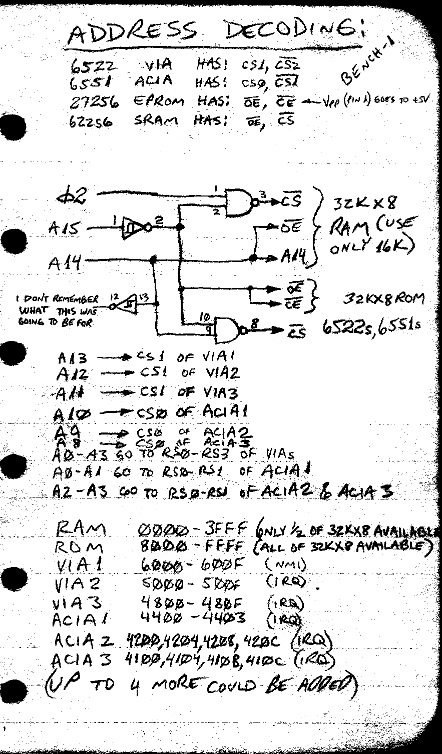 ADDRESS DECODING:
BENCH-1
6522 VIA HAS: CS1, CS2
6551 ACIA HAS: CS0, CS1
27256 EPROM HAS: OE, CE ← VPP (PIN 1) GOES TO +5V
62256 SRAM HAS: OE, CS
Φ2 1 2 3 CS
A15 1 2 OE
A14 A14
32KX8
RAM (USE
ONLY 16K)
I DON'T REMEMBER
WHAT THIS WAS
GOING TO BE FOR
12 13
OE
CE
32KX8 ROM
10 9 8 CS 6522s, 6551s
A13 → CS1 OF VIA1
A12 → CS1 OF VIA2
A11 → CS1 OF VIA3
A10 → CS0 OF ACIA1
A9 → CS0 OF ACIA2
A8 → CS0 OF ACIA3
A0-A3 GO TO RS0-RS3 OF VIAs
A0-A1 GO TO RS0-RS1 OF ACIA1
A2-A3 GO TO RS0-RS1 OF ACIA2 & ACIA3
RAM 0000-3FFF (ONLY 1/2 OF 32KX8 AVAILABLE)
ROM 8000-FFFF (ALL OF 32KX8 AVAILABLE)
VIA1 6000-600F (NMI)
VIA2 5000-500F (IRQ)
VIA3 4800-480F (IRQ)
ACIA1 4400-4403 (IRQ)
ACIA2 4200,4204,4208,420C (IRQ)
ACIA3 4100,4104,4108,410C (IRQ)
(UP TO 4 MORE COULD BE ADDED)